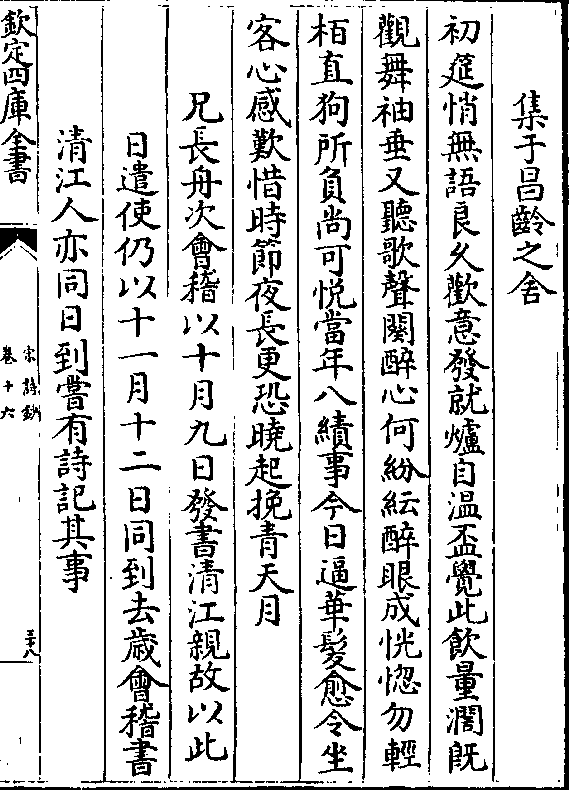 集于昌齡之舍
初筵悄無語良乆歡意發就爐自温盃覺此飲量濶既
觀舞袖垂又聽歌聲闋醉心何紛紜醉眼成恍惚勿輕
栢直狗所負尚可悦當年八績事今日逼華髮愈令坐
客心感歎惜時節夜長更恐曉起挽青天月
兄長舟次會稽以十月九日發書清江親故以此
日遣使仍以十一月十二日同到去歲會稽書
清江人亦同日到嘗有詩記其事
欽定四庫全書
宋詩鈔
卷十六
三十八